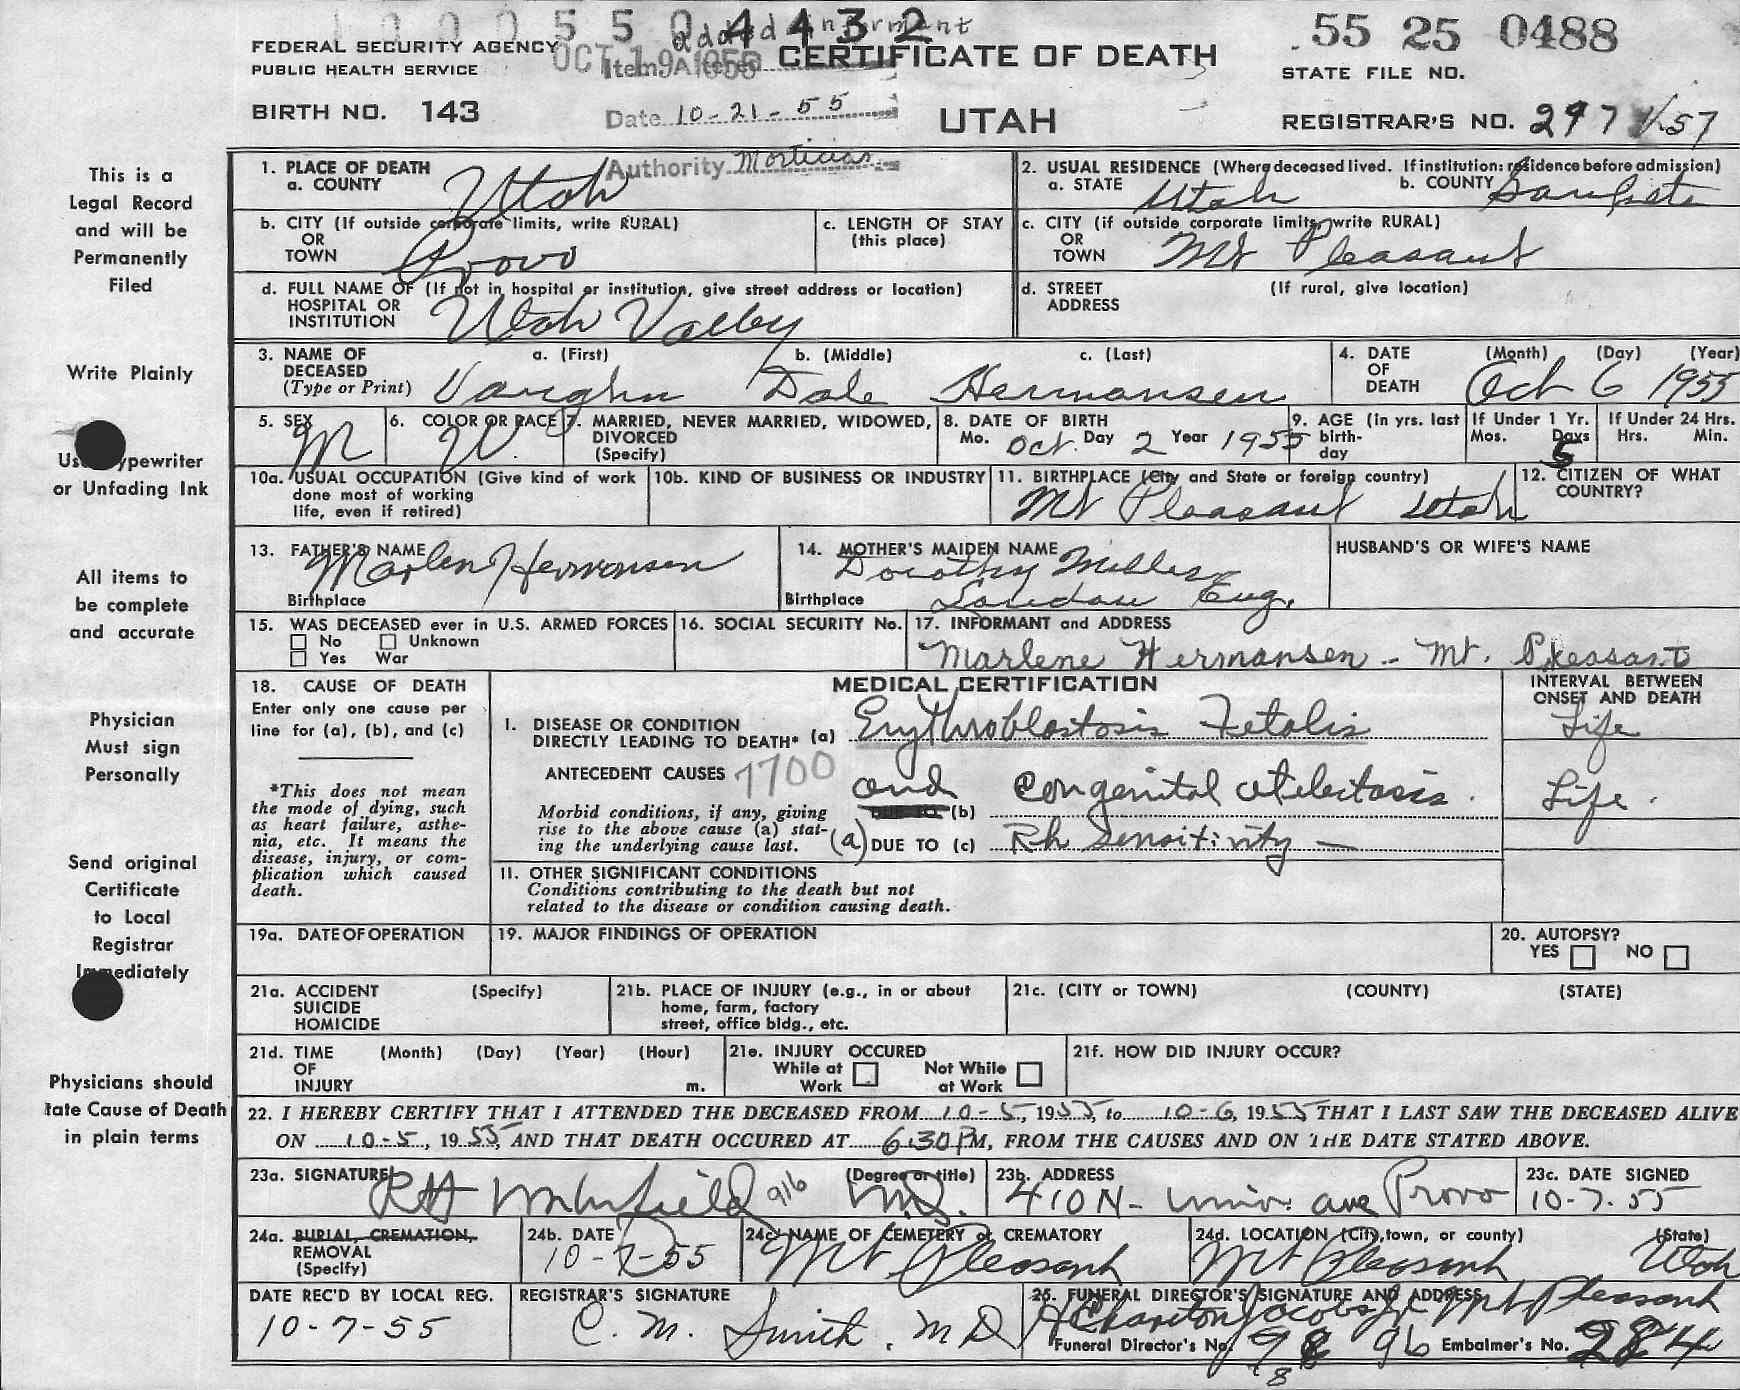 1 0 0 0 5 5 0 4 4 3 2
added informant
55 25 0488
FEDERAL SECURITY AGENCY
PUBLIC HEALTH SERVICE
OCT 19 1955
Item 9A
CERTIFICATE OF DEATH
STATE FILE NO.
BIRTH NO. 143
Date 10-21-55
UTAH
REGISTRAR'S NO. 297
Authority Mortician
This is a
Legal Record
and will be
Permanently
Filed
Write Plainly
Use Typewriter
or Unfading Ink
All items to
be complete
and accurate
Physician
Must sign
Personally
Send original
Certificate
to Local
Registrar
Immediately
Physicians should
tate Cause of Death
in plain terms
1. PLACE OF DEATH
a. COUNTY Utah
2. USUAL RESIDENCE (Where deceased lived. If institution: residence before admission)
a. STATE Utah b. COUNTY Sanpete
b. CITY (If outside corporate limits, write RURAL)
OR
TOWN Provo
c. LENGTH OF STAY
(this place)
c. CITY (if outside corporate limits, write RURAL)
OR
TOWN Mt Pleasant
d. FULL NAME OF (If not in hospital or institution, give street address or location)
HOSPITAL OR
INSTITUTION Utah Valley
d. STREET (If rural, give location)
ADDRESS
3. NAME OF DECEASED (Type or Print)
a. (First) b. (Middle) c. (Last)
Vaughn Dale Hermansen
4. DATE OF DEATH
(Month) (Day) (Year)
Oct 6 1955
5. SEX M
6. COLOR OR RACE W.
7. MARRIED, NEVER MARRIED, WIDOWED,
DIVORCED
(Specify)
8. DATE OF BIRTH
Mo. Oct. Day 2 Year 1955
9. AGE (in yrs. last
birth-
day
If Under 1 Yr.
Mos. Days
5
If Under 24 Hrs.
Hrs. Min.
10a. USUAL OCCUPATION (Give kind of work
done most of working
life, even if retired)
10b. KIND OF BUSINESS OR INDUSTRY
11. BIRTHPLACE (City and State or foreign country)
Mt Pleasant Utah
12. CITIZEN OF WHAT
COUNTRY?
13. FATHER'S NAME Marlen Hermansen
Birthplace
14. MOTHER'S MAIDEN NAME Dorothy Miller
Birthplace London Eng.
HUSBAND'S OR WIFE'S NAME
15. WAS DECEASED ever in U.S. ARMED FORCES
No Unknown
Yes War
16. SOCIAL SECURITY No.
17. INFORMANT and ADDRESS
Marlene Hermansen - Mt. Pleasant
18. CAUSE OF DEATH
Enter only one cause per
line for (a), (b), and (c)
*This does not mean
the mode of dying, such
as heart failure, asthe-
nia, etc. It means the
disease, injury, or com-
plication which caused
death.
MEDICAL CERTIFICATION
INTERVAL BETWEEN
ONSET AND DEATH
I. DISEASE OR CONDITION
DIRECTLY LEADING TO DEATH* (a) Erythroblastosis Fetalis Life
ANTECEDENT CAUSES 7700
Morbid conditions, if any, giving
rise to the above cause (a) stat-
ing the underlying cause last.
and (b) Congenital atelectasis. Life.
(a) DUE TO (c) Rh Sensitivity -
11. OTHER SIGNIFICANT CONDITIONS
Conditions contributing to the death but not
related to the disease or condition causing death.
19a. DATE OF OPERATION
19. MAJOR FINDINGS OF OPERATION
20. AUTOPSY?
YES NO
21a. ACCIDENT (Specify)
SUICIDE
HOMICIDE
21b. PLACE OF INJURY (e.g., in or about
home, farm, factory
street, office bldg., etc.
21c. (CITY or TOWN) (COUNTY) (STATE)
21d. TIME (Month) (Day) (Year) (Hour)
OF
INJURY m.
21e. INJURY OCCURED
While at Work Not While at Work
21f. HOW DID INJURY OCCUR?
22. I HEREBY CERTIFY THAT I ATTENDED THE DECEASED FROM 10-5, 1955, to 10-6, 1955 THAT I LAST SAW THE DECEASED ALIVE
ON 10-5, 1955, AND THAT DEATH OCCURED AT 6:30 PM, FROM THE CAUSES AND ON THE DATE STATED ABOVE.
23a. SIGNATURE (Degree or title)
916 M.D.
23b. ADDRESS
410 N- Univ. ave Provo
23c. DATE SIGNED
10-7-55
24a. BURIAL, CREMATION,
REMOVAL
(Specify)
24b. DATE
10-7-55
24c. NAME OF CEMETERY or CREMATORY
Mt Pleasant
24d. LOCATION (City, town, or county) (State)
Mt Pleasant Utah
DATE REC'D BY LOCAL REG.
10-7-55
REGISTRAR'S SIGNATURE
C. M. Smith, MD
25. FUNERAL DIRECTOR'S SIGNATURE AND ADDRESS
Jacobs Mt Pleasant
Funeral Director's No. 96 Embalmer's No. 284